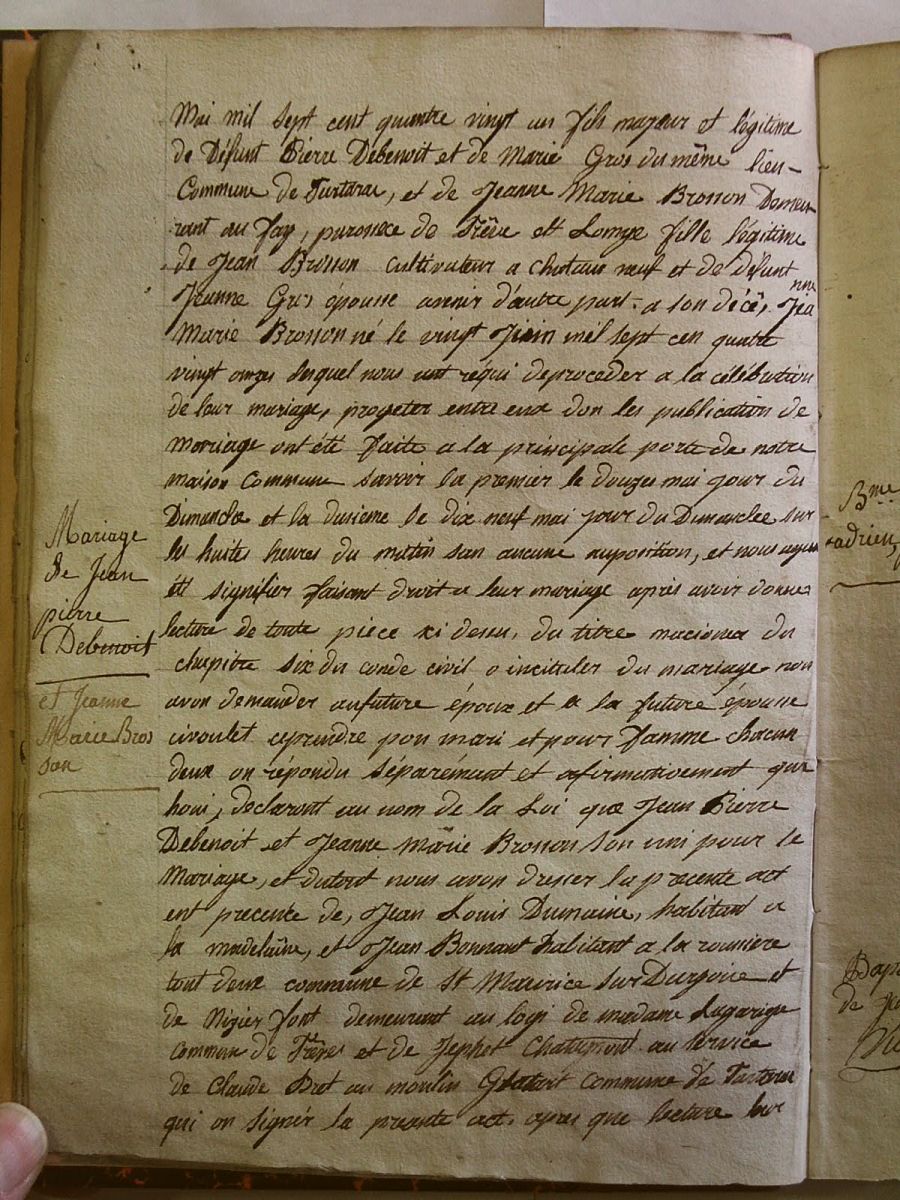 Mai mil sept cent quantre vingt un fils majeur et légitime
de Défunt Pierre Debenoit et de Marie Gros du même lieu-
Commune de Tartarac, et de Jeanne Marie Brosson Demeu
rant au Fay, de Trêve et Longe fille légitime
de Jean Brosson cultivateur a chateau neuf et de défunt
Jeanne Gros épousse avenir d'autre part. a son décés, Jea
nne
Marie Brosson né le vingt Jiuin mil sept cen quatre
vingt onzes lesquel nous ont réqui deproceder a la célébration
de leur mariage, progeter entre eux don les publication de
marriage ont été faite a la principale porte de notre
maison Commune savoir la premier le douze mai jour du
Dimanche et la dusieme le dix neuf mai jour du Dimanche sur
les huites heures du mattin san aucune auposition, et nous ayan
été signifier faisant droit a leur mariage après avoir donner
lecture de toute piece ci desu, du titre du
chapitre six du conde civil o incituler du mariage nou
avon demander aufuture époux et a la future épouse
civoulet ceprendre pou mari et pour famme chacun
deux on répondu séparément et afirmativement que
houi, declaront au nom de la Loi que Jean Pierre
Debenoit et Jeanne marie Brosson son uni pour le
Mariage, et dutout nous avon dresser la précente act
ent precence de, Jean Louis Dumaine, habitant a
la madelaine, et Jean Bonnant habitant a la rousiere
tout deux commune de St Maurice sur Dargoire et
de Nizier font demeurant au logi de madame Lagarige
Commun de Trêves et de Jephet Chatemont au service
de Claude Bret au moulin commune de Tartarac
qui on signér la preante act. apres que lecture leur
Mariage
de Jean
pierre
Debenoit
et Jeanne
Marie Bros
son
Bme
adrien,
Bap
de